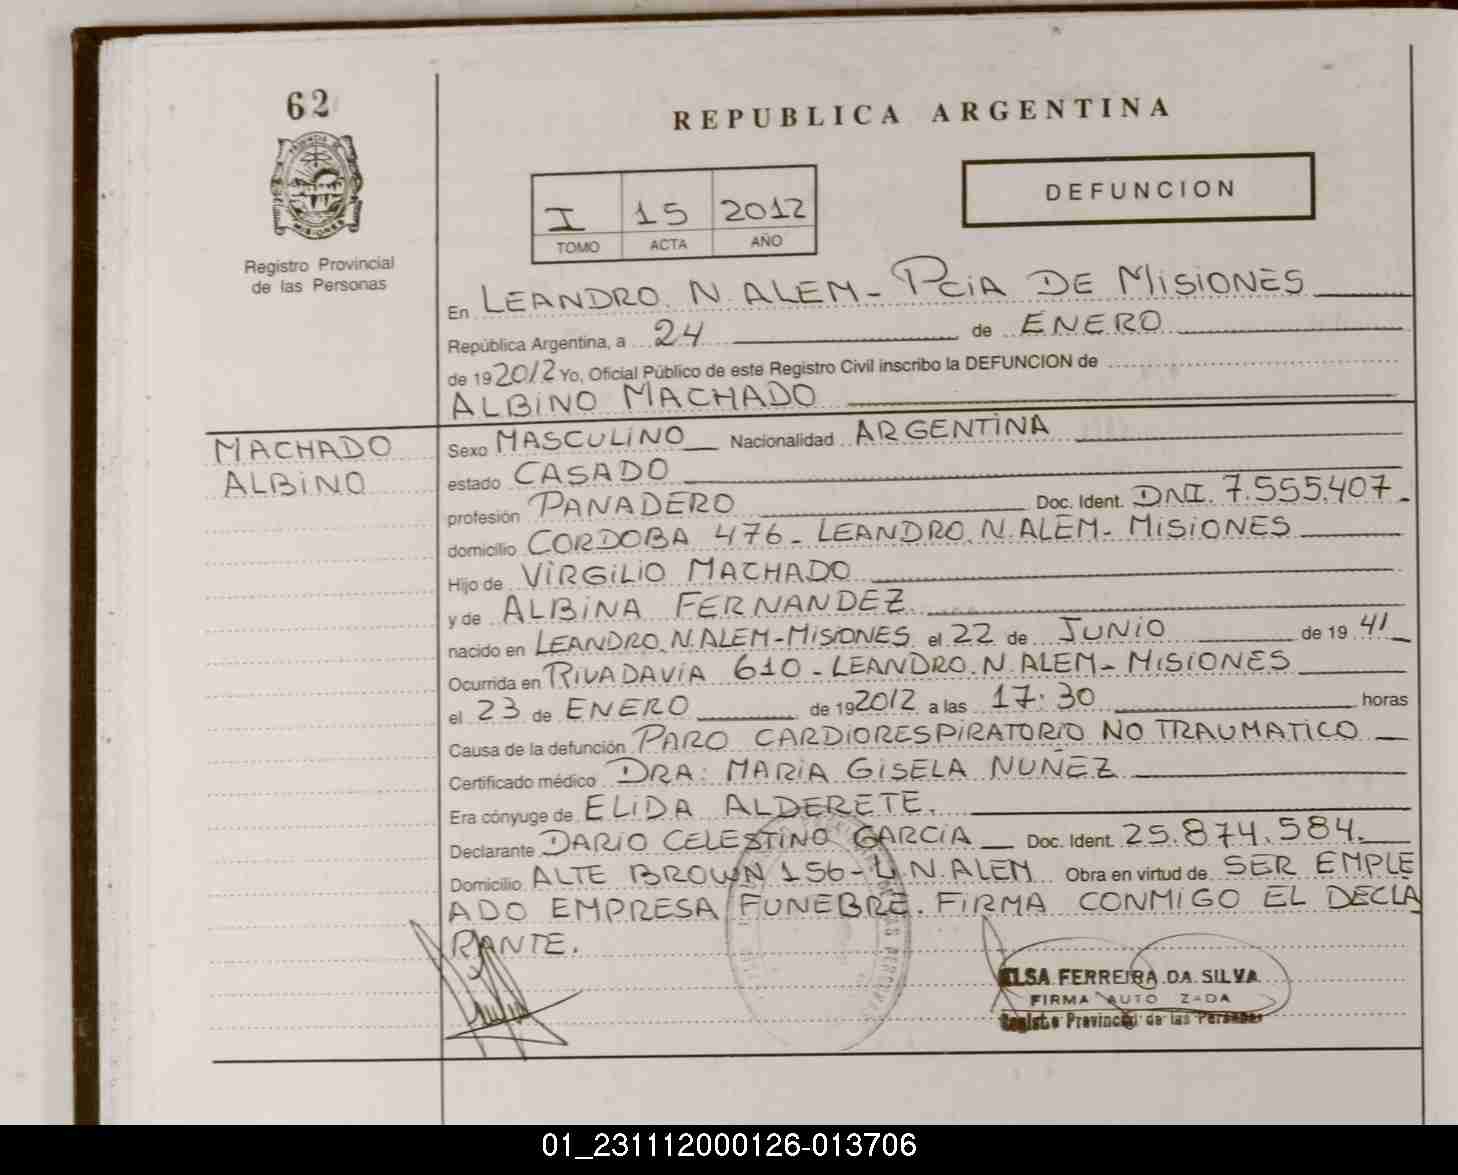 62
REPUBLICA ARGENTINA
DEFUNCION
I 15 2012
TOMO ACTA AÑO
Registro Provincial
de las Personas
En LEANDRO. N. ALEM - PCIA DE MISIONES
República Argentina, a 24 de ENERO
de 19 2012 Yo, Oficial Público de este Registro Civil inscribo la DEFUNCION de
ALBINO MACHADO
MACHADO
ALBINO
Sexo MASCULINO Nacionalidad ARGENTINA
estado CASADO
profesión PANADERO Doc. Ident. DNI. 7.555.407
domicilio CORDOBA 476 - LEANDRO. N. ALEM - MISIONES
Hijo de VIRGILIO MACHADO
y de ALBINA FERNANDEZ
nacido en LEANDRO. N. ALEM - MISIONES. el 22 de JUNIO de 19 41
Ocurrida en RIVADAVIA 610 - LEANDRO. N. ALEM - MISIONES
el 23 de ENERO de 19 2012 a las 17:30 horas
Causa de la defunción PARO CARDIORESPIRATORIO NO TRAUMATICO
Certificado médico DRA: MARIA GISELA NUÑEZ
Era cónyuge de ELIDA ALDERETE.
Declarante DARIO CELESTINO GARCIA Doc. Ident. 25.874.584.
Domicilio ALTE BROWN 156 - L. N. ALEM Obra en virtud de SER EMPLE
ADO EMPRESA FUNEBRE. FIRMA CONMIGO EL DECLA
RANTE.
ELSA FERREIRA DA SILVA
FIRMA AUTO Z-DA
Registro Provincial de las Personas
01_231112000126-013706